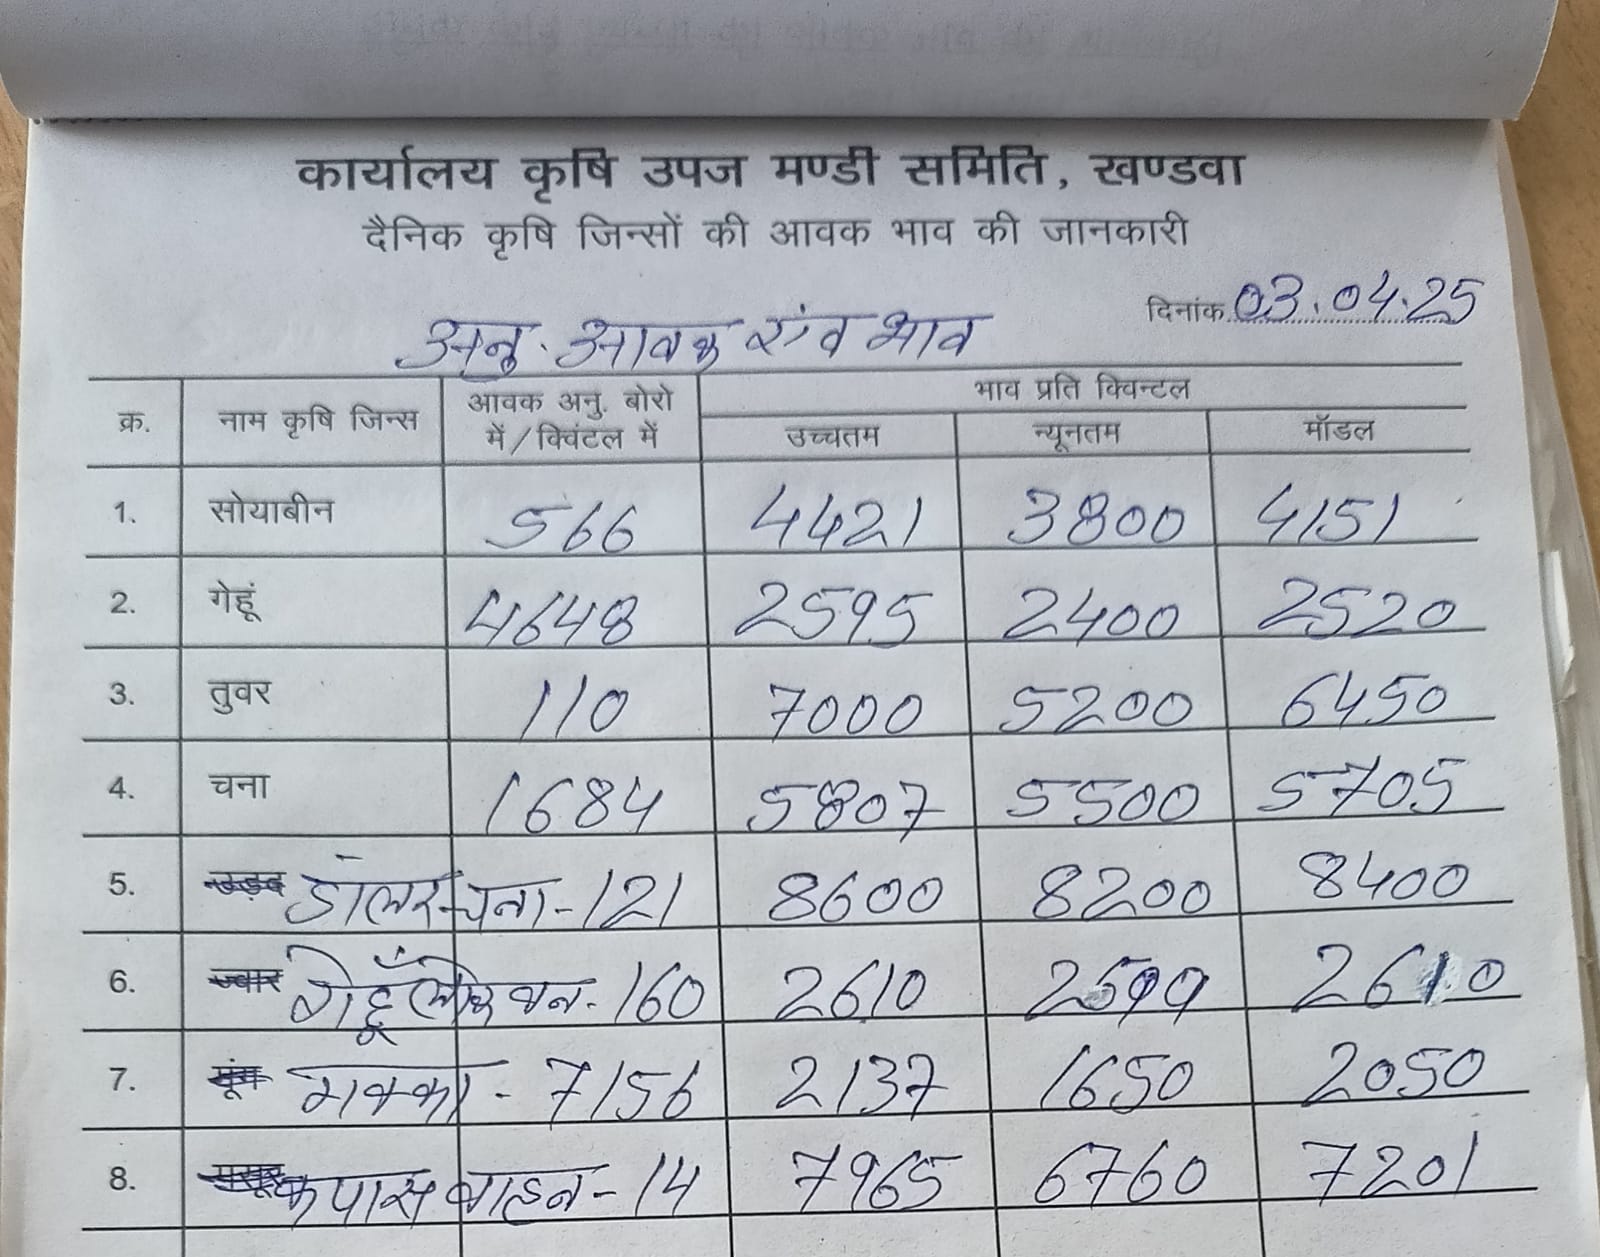 कार्यालय कृषि उपज मण्डी समिति, खण्डवा
दैनिक कृषि जिन्सों की आवक भाव की जानकारी
दिनांक 03.04.25
अनु. आवक एंव भाव
क्र. नाम कृषि जिन्स आवक अनु. बोरो में/क्विंटल में भाव प्रति क्विन्टल
उच्चतम न्यूनतम मॉडल
1. सोयाबीन 566 4421 3800 4151
2. गेहूं 4648 2595 2400 2520
3. तुवर 110 7000 5200 6450
4. चना 1684 5807 5500 5705
5. उड़द डॉलर चना - 121 8600 8200 8400
6. ज्वार गेहूँ लोक वन - 160 2610 2599 2610
7. मूंग मक्का - 7156 2137 1650 2050
8. मसूर कपास वाहन - 14 7965 6760 7201